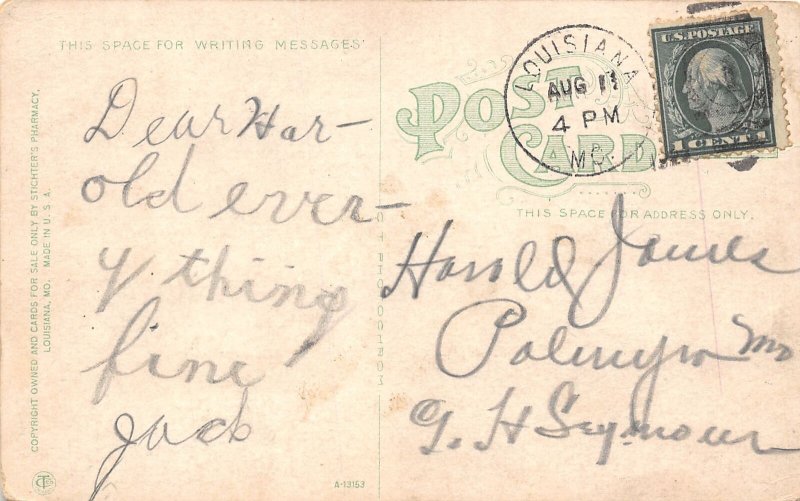 THIS SPACE FOR WRITING MESSAGES
Dear Har-
old ever-
y thing
fine
Jack
COPYRIGHT OWNED AND CARDS FOR SALE ONLY BY STICHTER'S PHARMACY,
LOUISIANA, MO. MADE IN U.S.A.
A-13153
POST CARD
LOUISIANA
AUG 11
4 PM
MO.
U.S. POSTAGE
1 CENT 1
THIS SPACE FOR ADDRESS ONLY.
Harold James
Palmyra Mo
G. H Seymour